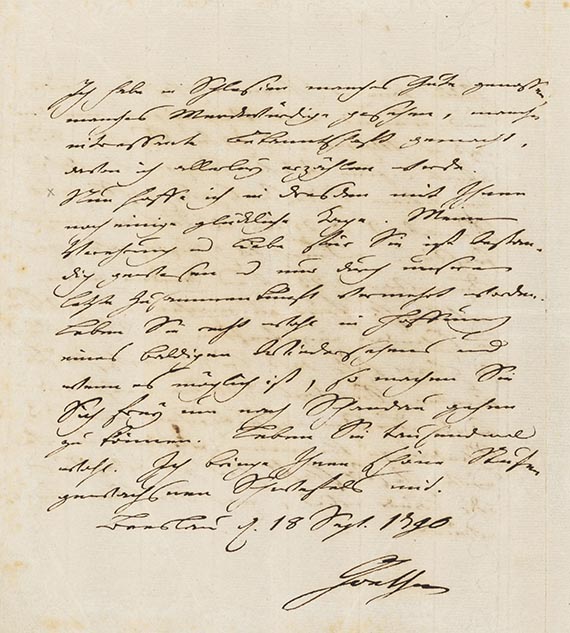 Ich habe in Schlesien manches Gute genossen,
manches Merckwürdige gesehen, manche
interessante Bekanntschafft gemacht,
davon ich allerley erzählen werde.
Nun hoffe ich in Dresden mit Ihnen
noch einige glückliche Tage. Meine
Verehrung u Liebe für Sie ist bestän-
dig gewesen u nur durch unsere
letzte Zusammenkunft vermehrt worden.
Leben Sie recht wohl in Hoffnung
eines baldigen Wiedersehens und
wenn es möglich ist, so machen Sie
Sich frey um nach Schandau gehen
zu können. Leben Sie tausendmal
wohl. Ich bringe Ihnen schöne Stufen
gewachsnen Schwefels mit.
Breslau d. 18 Sept. 1790
Goethe